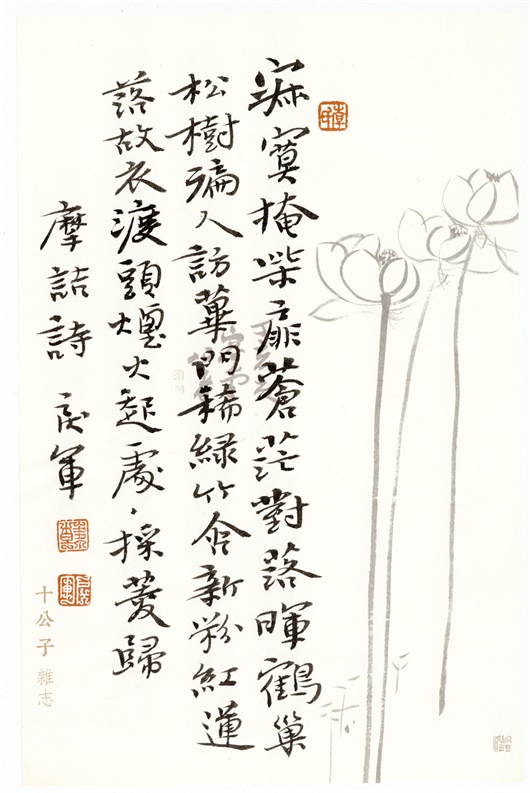 寂寞掩柴扉蒼茫對落暉鶴巢
松樹徧人訪蓽門稀緑竹含新粉紅蓮
落故衣渡頭煙火起處、採菱歸
摩詰詩 軍
十公子 雜志